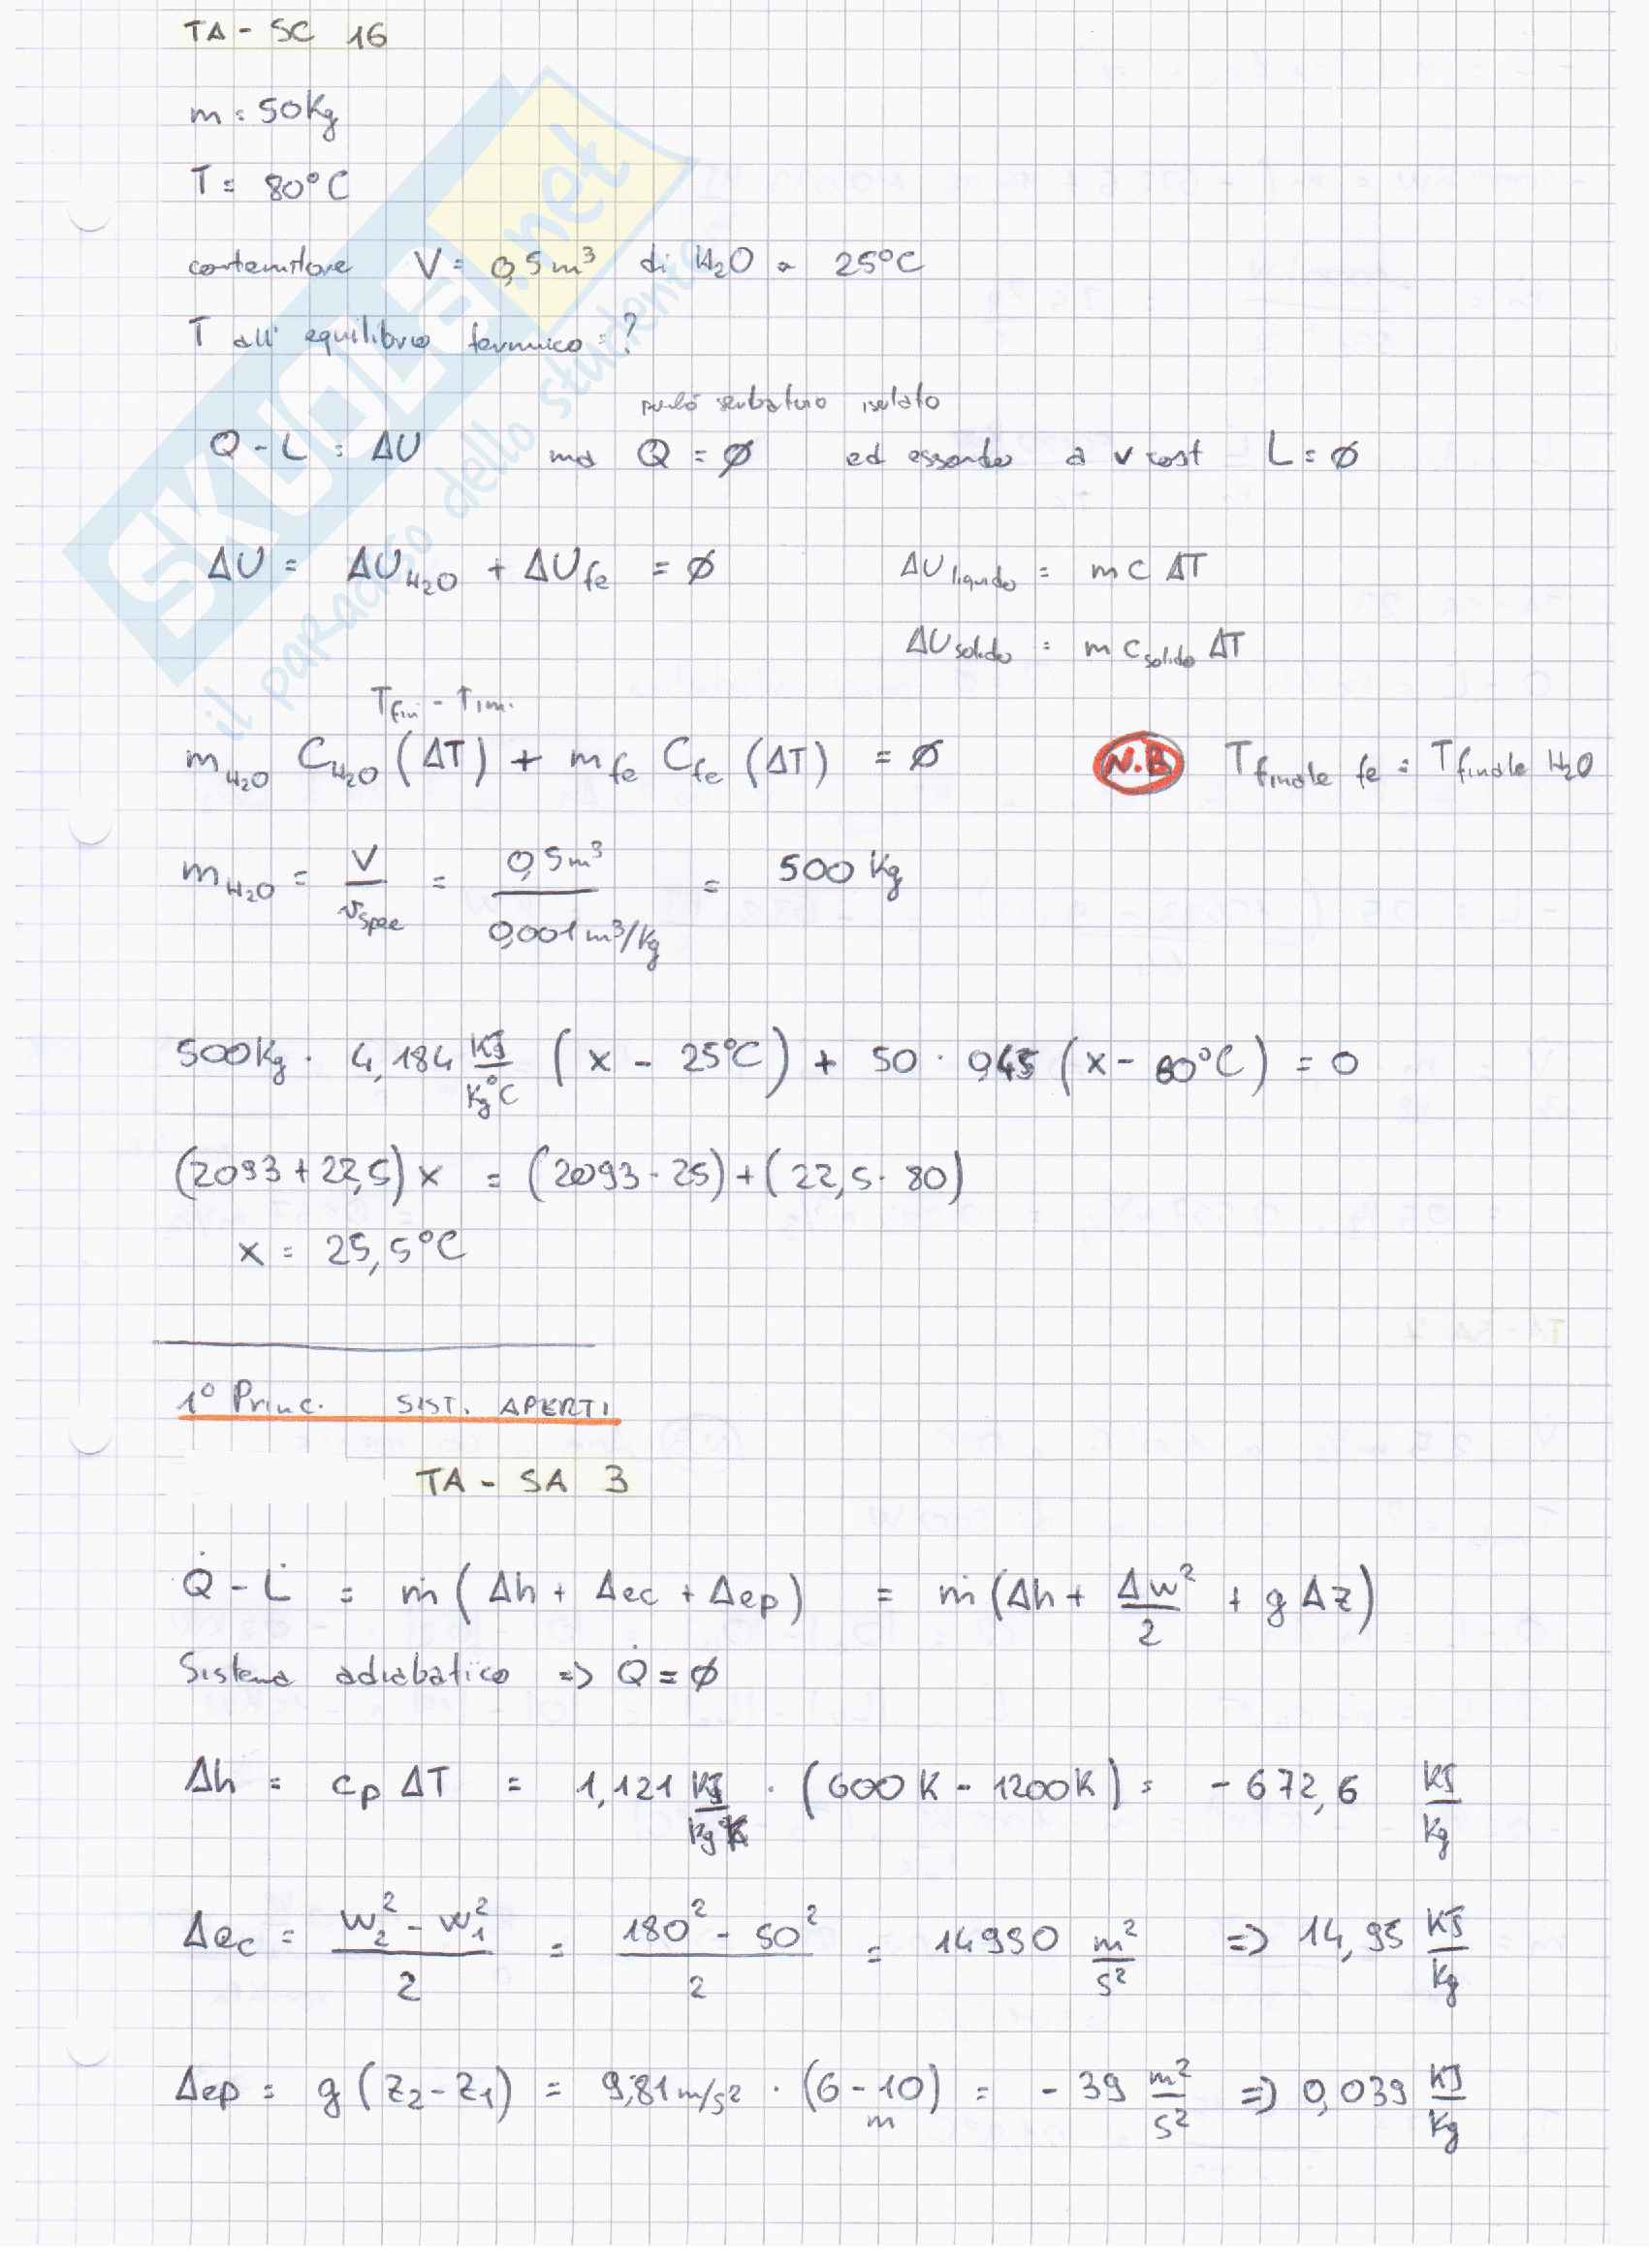 TA - SC 16
m = 50 Kg
T = 80°C
contenitore V = 0,5 m³ di H₂O a 25°C
T all' equilibrio termico = ?
serbatoio isolato
Q - L = ΔU ma Q = ∅ ed essendo a v cost L = ∅
ΔU = ΔU_H₂O + ΔU_fe = ∅ ΔU_liquido = m C ΔT
ΔU_solido = m C_solido ΔT
T_fin - T_in.
m_H₂O C_H₂O (ΔT) + m_fe C_fe (ΔT) = ∅ N.B T_finale fe = T_finale H₂O
m_H₂O = V / v_spec = 0,5 m³ / 0,001 m³/Kg = 500 Kg
500 Kg · 4,184 KJ/Kg°C (x - 25°C) + 50 · 0,45 (x - 80°C) = 0
(2093 + 22,5) x = (2093 · 25) + (22,5 · 80)
x = 25,5°C
1° Princ. SIST. APERTI
TA - SA 3
Q̇ - L̇ = ṁ (Δh + Δec + Δep) = ṁ (Δh + Δw²/2 + g Δz)
Sistema adiabatico => Q̇ = ∅
Δh = cp ΔT = 1,121 KJ/Kg°K · (600 K - 1200 K) = - 672,6 KJ/Kg
Δec = w₂² - w₁² / 2 = 180² - 50² / 2 = 14950 m²/s² => 14,95 KJ/Kg
Δep = g (z₂ - z₁) = 9,81 m/s² · (6 - 10) m = - 39 m²/s² => 0,039 KJ/Kg
SKUOLA.net
il paradiso dello studente